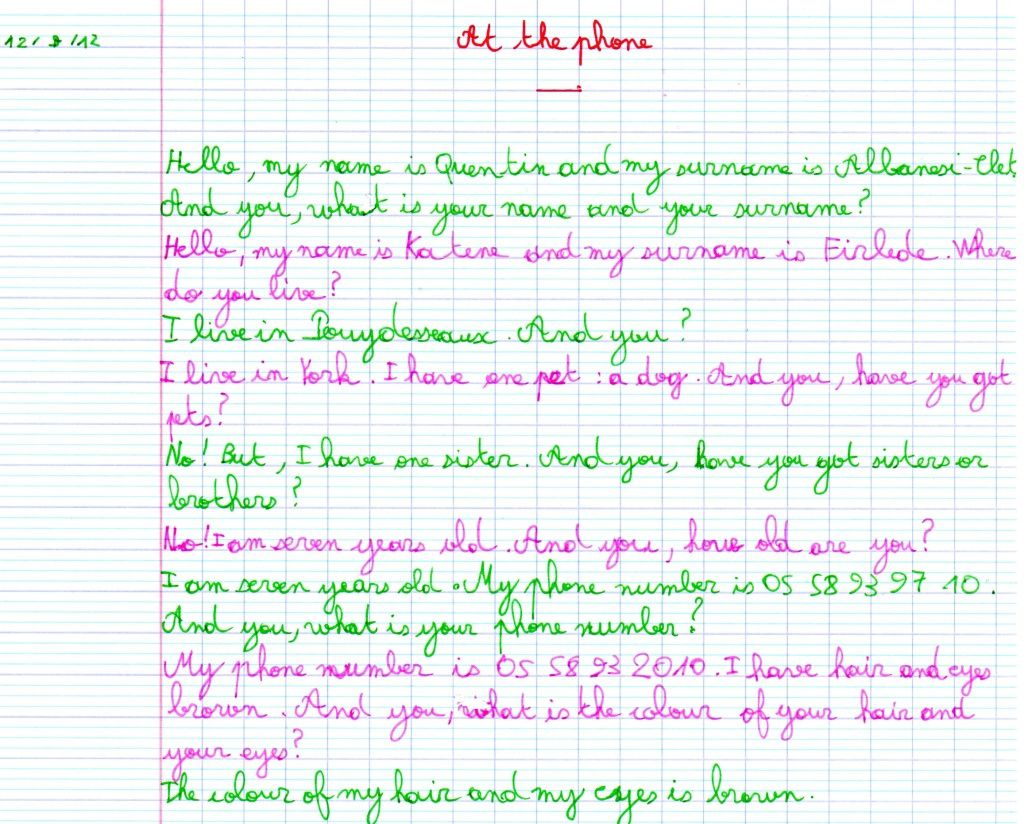 12/9/12
At the phone
Hello, my name is Quentin and my surname is Albanesi-Clet.
And you, what is your name and your surname?
Hello, my name is Katene and my surname is Eirlede. Where
do you live?
I live in Pouydesseaux. And you?
I live in York. I have one pet : a dog. And you, have you got
pets?
No! But, I have one sister. And you, have you got sisters or
brothers?
No! I am seven years old. And you, how old are you?
I am seven years old. My phone number is 05 58 93 97 10.
And you, what is your phone number?
My phone number is 05 58 93 20 10. I have hair and eyes
brown. And you, what is the colour of your hair and
your eyes?
The colour of my hair and my eyes is brown.